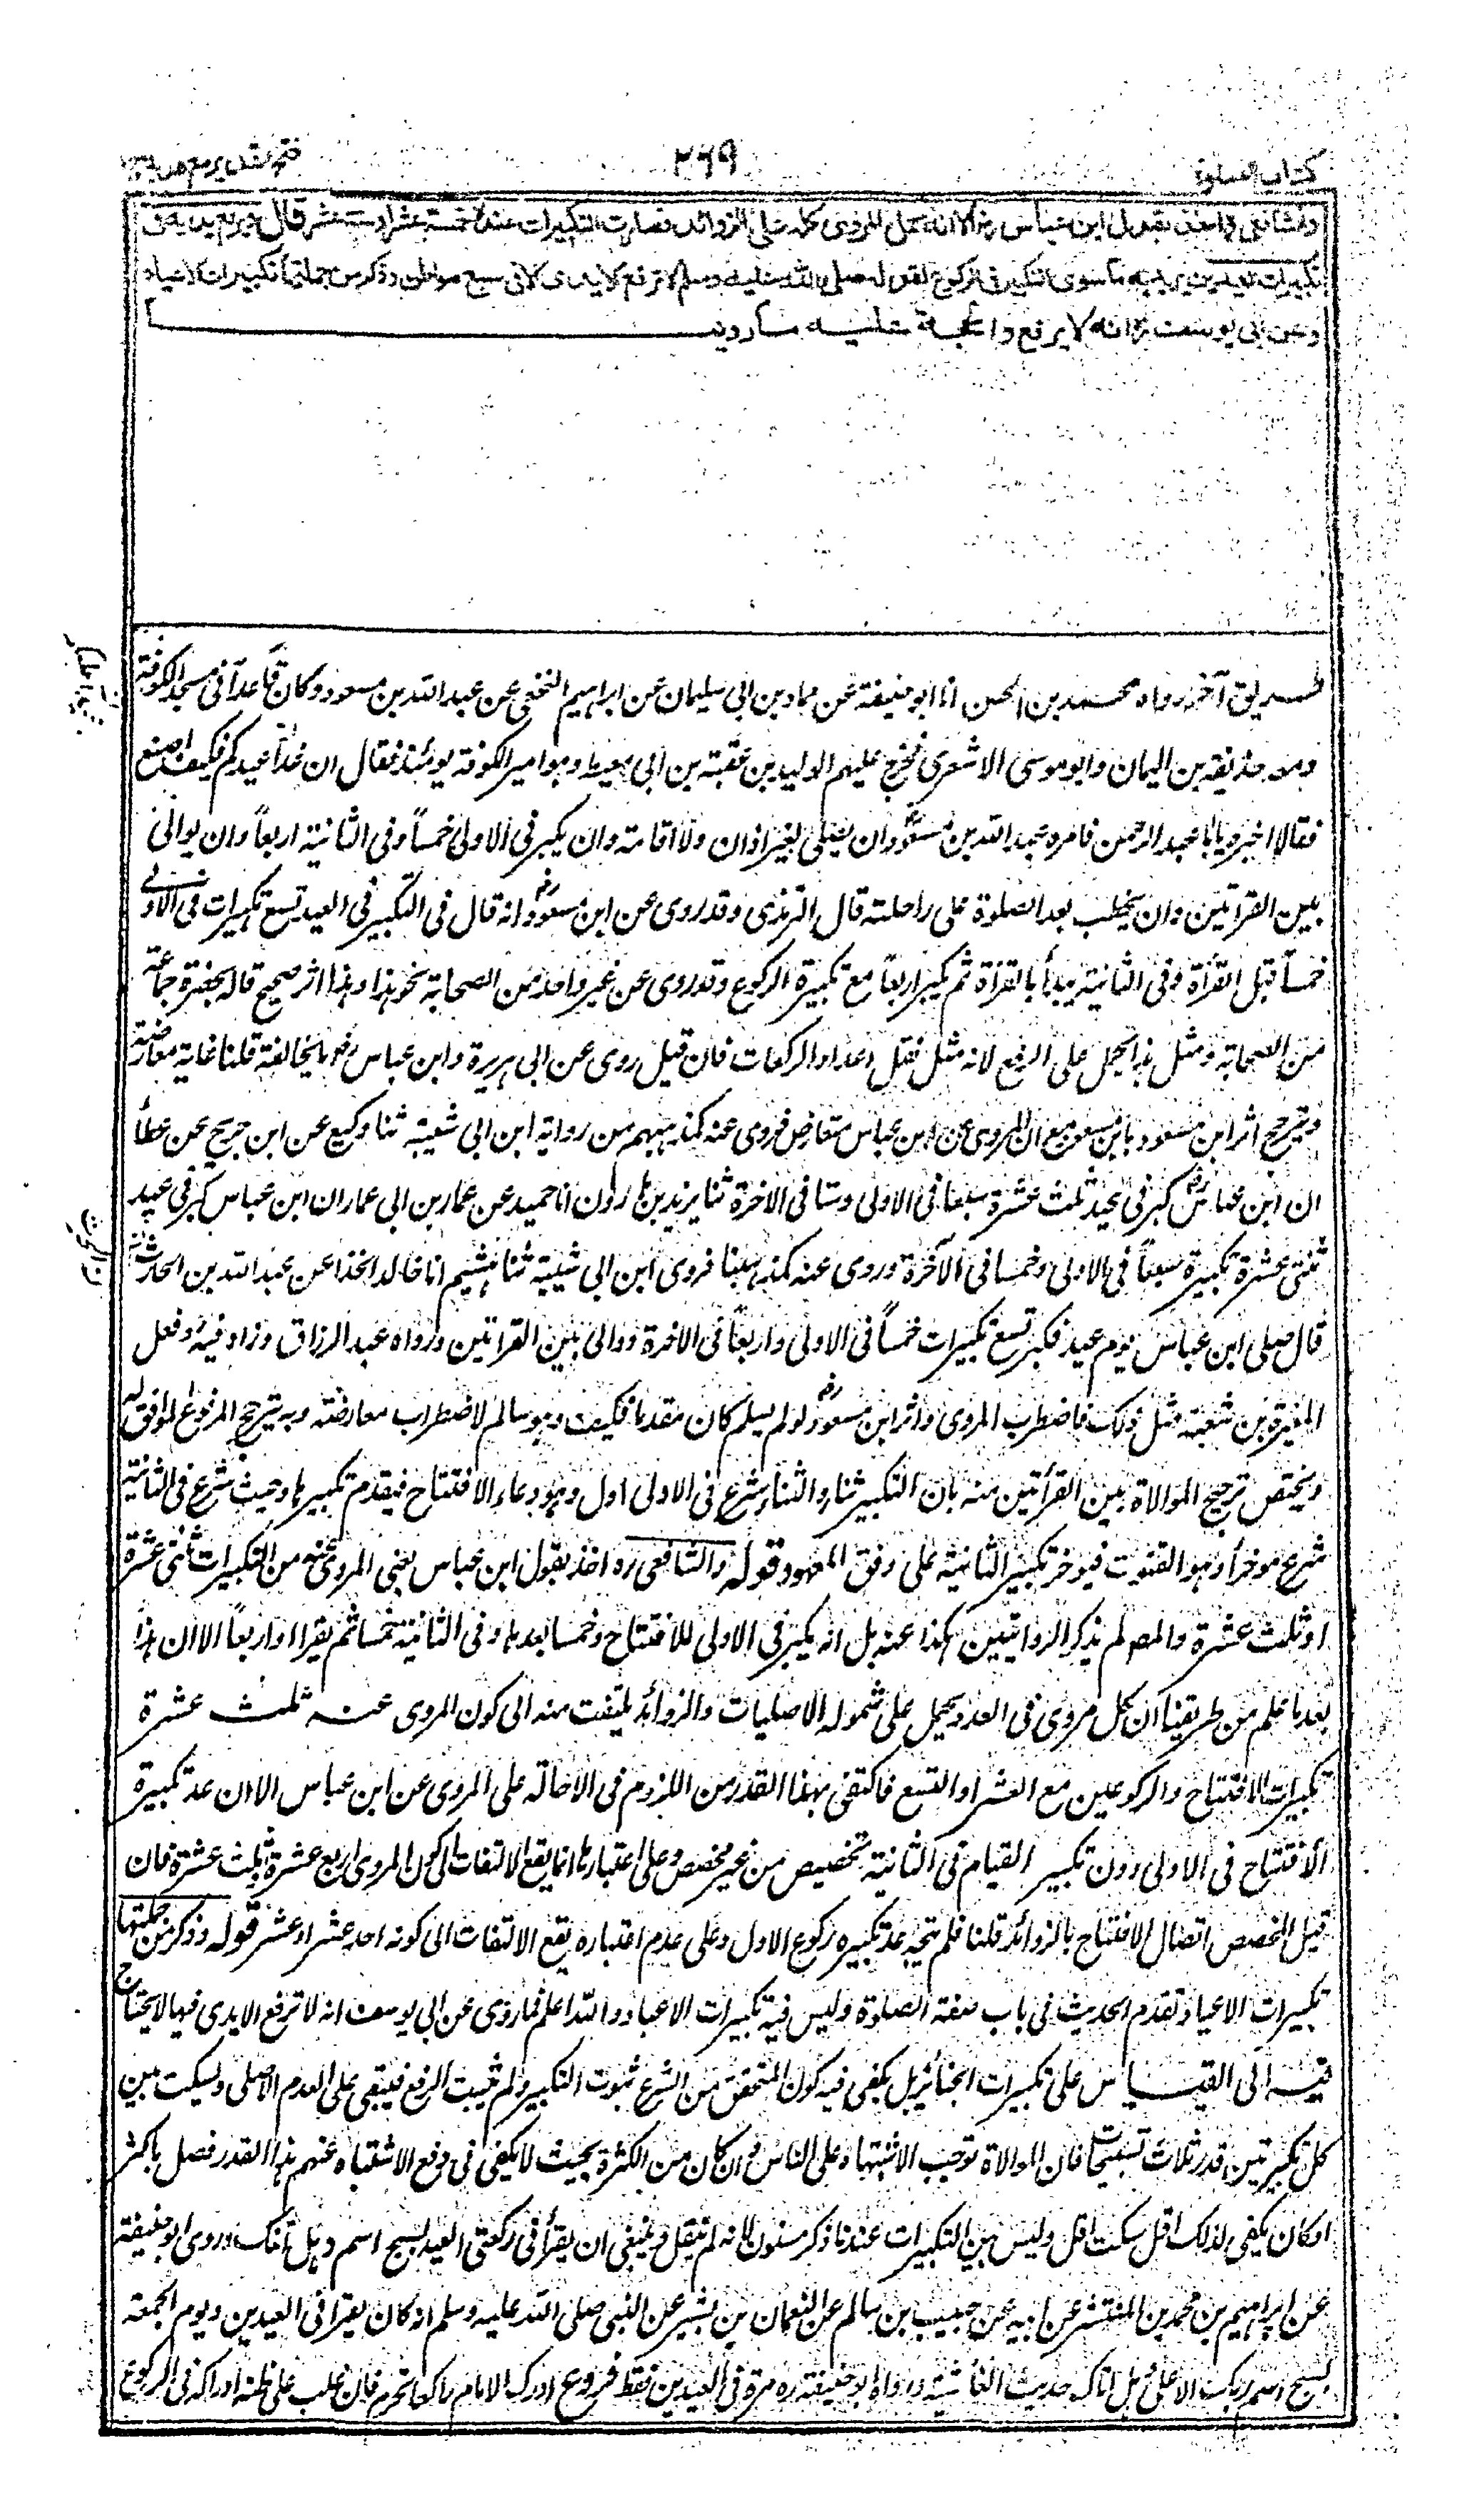 كتاب الصلوة
٢٦٩
فتح القدير مع هدايه
والشافعي اخذ بقول ابن عباس رض الا انه حمل المروى كله على الزوائد فصارت التكبيرات عنده خمسة عشر او ستة عشر قال ويرفع يديه فى
تكبيرات العيدين يريد به ما سوى التكبير فى الركوع لقوله صلى الله عليه وسلم لا ترفع الايدى الا فى سبع مواطن وذكر من جملتها تكبيرات الاعياد
وعن ابى يوسف رح انه لا يرفع والحجة عليه ما روينا
طريق آخر رواه محمد بن الحسن انا ابو حنيفة عن حماد بن ابى سليمان عن ابراهيم النخعى عن عبد الله بن مسعود وكان قاعداً فى مسجد الكوفة
ومعه حذيفة بن اليمان وابو موسى الاشعرى فخرج عليهم الوليد بن عقبة بن ابى معيط وهو امير الكوفة يومئذ فقال ان غداً عيدكم فكيف اصنع
فقالا اخبره يا ابا عبد الرحمن فامره عبد الله بن مسعود ان يصلى بغير اذان ولا اقامة وان يكبر فى الاولى خمساً وفى الثانية اربعاً وان يوالى
بين القرائتين وان يخطب بعد الصلوة على راحلته قال الترمذى وقد روى عن ابن مسعود رض انه قال فى التكبير فى العيد تسع تكبيرات فى الاولى
خمساً قبل القرأة وفى الثانية يبدأ بالقرأة ثم يكبر اربعاً مع تكبيرة الركوع وقد روى عن غير واحد من الصحابة نحو هذا وهذا اثر صحيح قاله بحضرة جماعة
من الصحابة ومثل هذا يحمل على الرفع لانه مثل نقل اعداد الركعات فان قيل روى عن ابى هريرة وابن عباس رض ما يخالفه قلنا غاية معارضة
ويترجح اثر ابن مسعود بابن مسعود مع ان المروى عن ابن عباس متعارض فروى عنه كمذهبهم من رواية ابن ابى شيبة ثنا وكيع عن ابن جريج عن عطاء
ان ابن عباس رض كبر فى عيد ثلث عشرة سبعا فى الاولى وستا فى الاخرة ثنا يزيد بن هارون انا حميد عن عمار بن ابى عمار ان ابن عباس كبر فى عيد
ثنتى عشرة تكبيرة سبعاً فى الاولى وخمسا فى الآخرة وروى عنه كمذهبنا فروى ابن ابى شيبة ثنا هشيم انا خالد الحذا عن عبد الله بن الحارث
قال صلى ابن عباس يوم عيد فكبر تسع تكبيرات خمساً فى الاولى واربعاً فى الاخرة ووالى بين القرائتين ورواه عبد الرزاق وزاد فيه وفعل
المغيرة بن شعبة مثل ذلك فاضطرب المروى واثر ابن مسعود رض لو لم يسلم كان مقدما فكيف وهو سالم لاضطراب معارضه وبه يترجح المرفوع الموافق له
ويختص ترجيح الموالاة بين القرأتين منه بان التكبير ثناء والثناء شرع فى الاولى اول وهو دعاء الافتتاح فيقدم تكبيرها وحيث شرع فى الثانية
شرع موخراً وهو القنوت فيوخر تكبير الثانية على وفق المعهود قوله والشافعى ره اخذ بقول ابن عباس يعنى المروى عنه من التكبيرات ثنتى عشرة
او ثلث عشرة والمص لم يذكر الروايتين هكذا عنه بل انه يكبر فى الاولى للافتتاح وخمسا بعدها وفى الثانية خمسا ثم يقرأ او اربعاً الا ان هذا
بعد ما علم من طريقنا ان كل مروى فى العدد يحمل على شموله الاصليات والزوائد يلتفت منه الى كون المروى عنه ثلث عشرة
تكبيرات الافتتاح والركوعين مع العشر او التسع فاكتفى بهذا القدر من اللزوم فى الاحالة على المروى عن ابن عباس الا ان عد تكبيرة
الافتتاح فى الاولى دون تكبير القيام فى الثانية تخصيص من غير مخصص وعلى اعتبارها انما يقع الالتفات الى كون المروى اربع عشرة ثلث عشرة فان
قيل المخصص اتصال الافتتاح بالزوائد قلنا فلم يتجه عد تكبيره ركوع الاول وعلى عدم اعتباره يقع الالتفات الى كونه احد عشر او عشر قوله وذكر من جملتها
تكبيرات الاعياد تقدم الحديث فى باب صفة الصلوة وليس فيه تكبيرات الاعياد والله اعلم فما روى عن ابى يوسف انه لا ترفع الايدى فيها لا يحتاج
فيه الى القياس على تكبيرات الجنائز بل يكفى فيه كون المتحقق من الشرع ثبوت التكبير ولم يثبت الرفع فيبقى على العدم الاصلى ويسكت بين
كل تكبيرتين قدر ثلاث تسبيحات فان الموالاة توجب الاشتباه على الناس وان كان من الكثرة بحيث لا يكفى فى دفع الاشتباه عنهم هذا القدر فصل باكثر
او كان يكفى لذلك اقل سكت اقل وليس بين التكبيرات عندنا ذكر مسنون لانه لم ينقل وينبغى ان يقرأ فى ركعتى العيد بسبح اسم وهل اتاك وروى ابو حنيفة
عن ابراهيم بن محمد بن المنتشر عن ابيه عن حبيب بن سالم عن النعمان بن بشير عن النبى صلى الله عليه وسلم انه كان يقرأ فى العيدين ويوم الجمعة
بسبح اسم ربك الاعلى وهل اتاك حديث الغاشية ورواه ابو حنيفة ره مرة فى العيدين فقط فروع ادرك الامام راكعا تحرم فان غلب على ظنه ادراكه فى الركوع